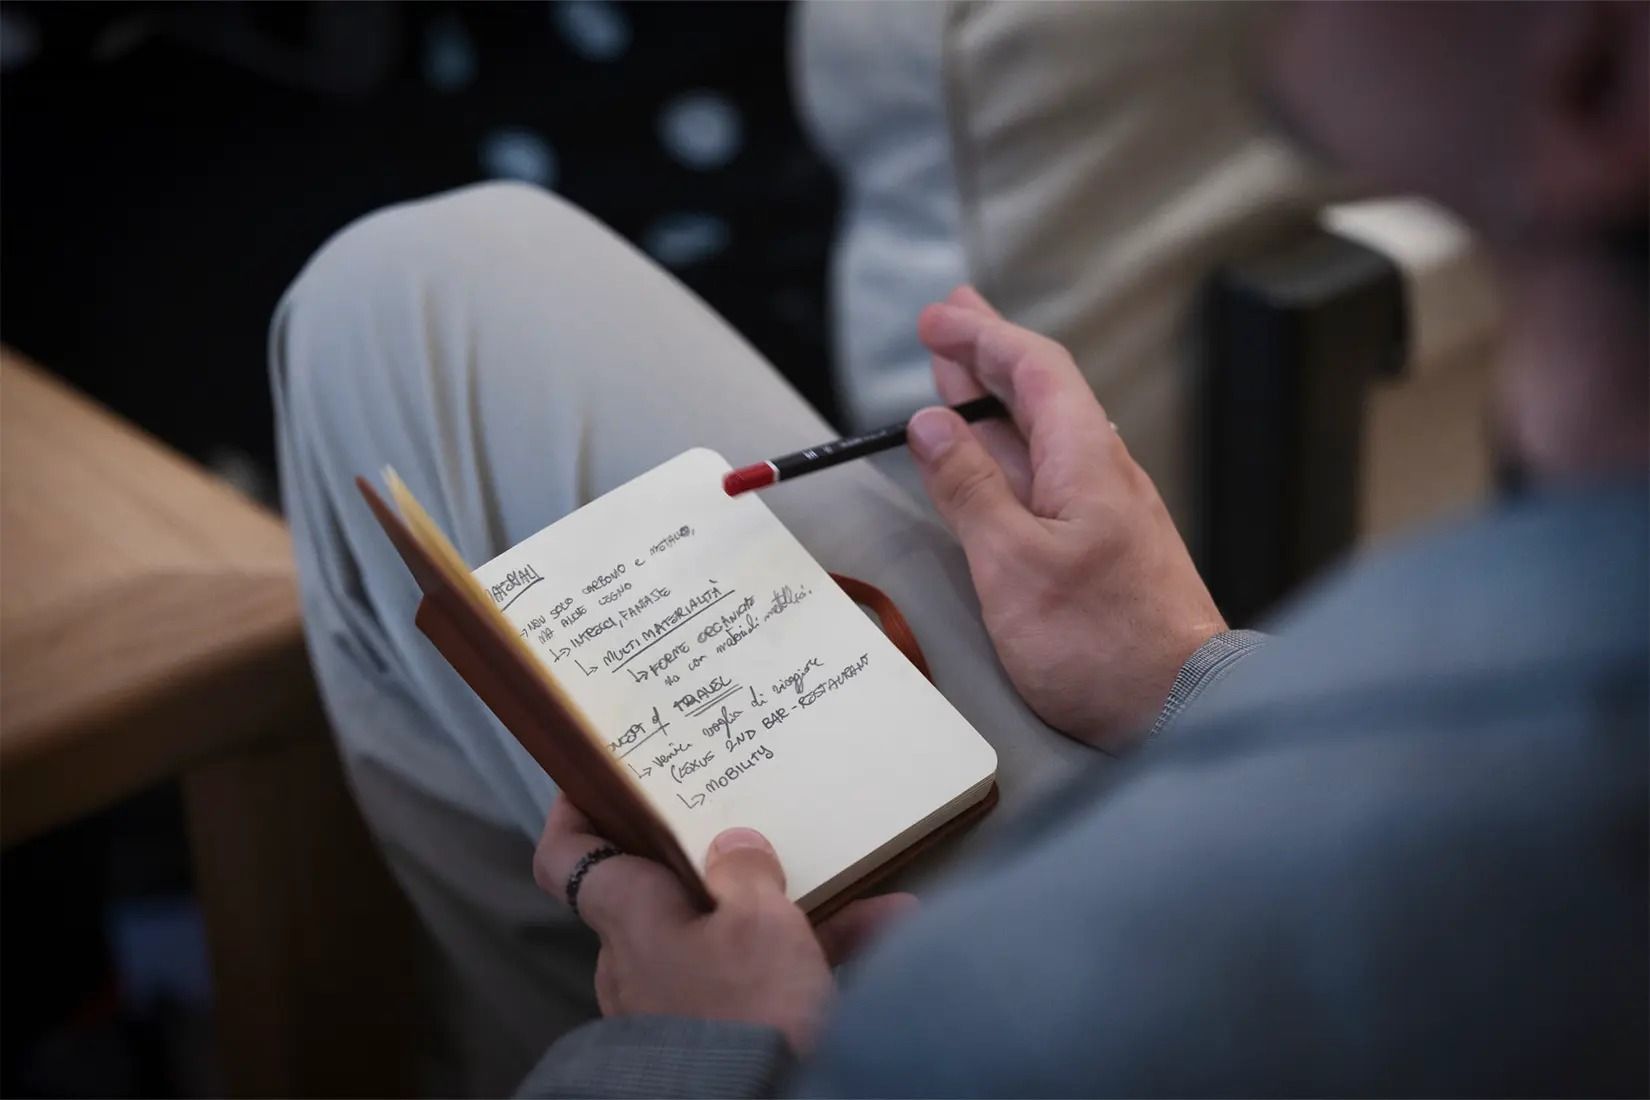 MATERIALI
→ NON SOLO CARBONIO e METALLO,
MA ANCHE LEGNO
↳ INTRECCI, FANTASIE
↳ MULTIMATERIALITÀ
↳ FORME ORGANICHE
no con materiali metallici
CONCEPT of TRAVEL
↳ venire voglia di viaggiare
(LEXUS 2ND BAR - RESTAURANT
↳ MOBILITY